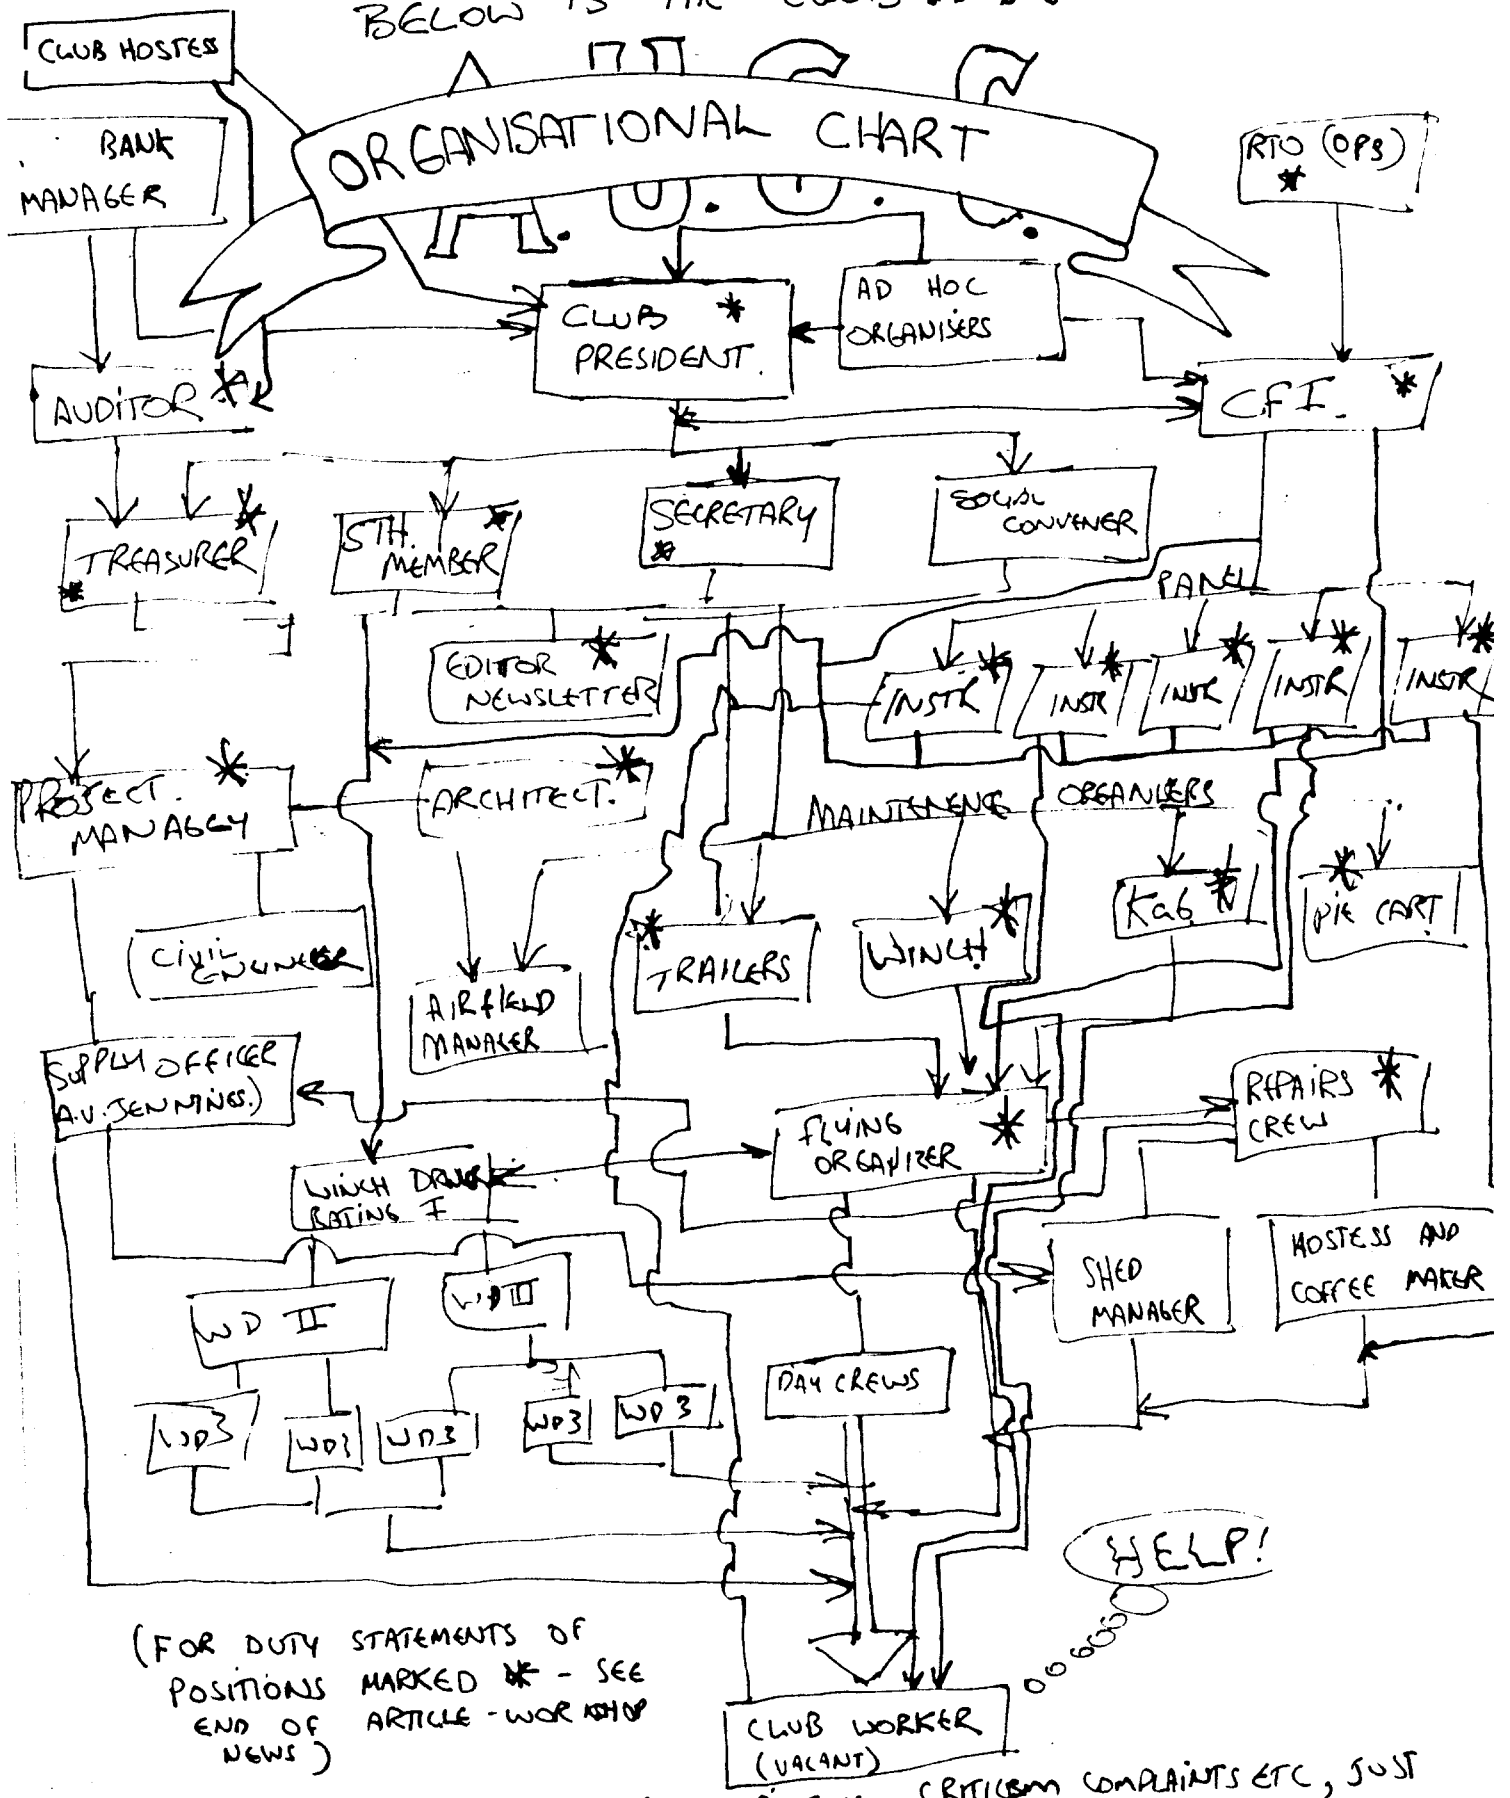 BELOW IS THE CLUBS
CLUB HOSTESS
A.U.G.C.
ORGANISATIONAL CHART
BANK
MANAGER
RTO (OPS)
*
CLUB *
PRESIDENT.
AD HOC
ORGANISERS
AUDITOR *
C.F.I. *
TREASURER *
*
5TH. *
MEMBER
SECRETARY
*
SOCIAL
CONVENER
PANEL
EDITOR *
NEWSLETTER
INSTR *
INSTR *
INSTR *
INSTR *
INSTR *
PROJECT. *
MANAGER
ARCHITECT. *
MAINTENENCE ORGANISERS
CIVIL
ENGINEER
AIRFIELD
MANAGER
* TRAILERS
WINCH *
Ka6 *
* PIE CART
SUPPLY OFFICER
A.V. JENNINGS.)
FLYING
ORGANIZER *
REPAIRS *
CREW
WINCH DRIVER
RATING I
WD II
WD II
SHED
MANAGER
HOSTESS AND
COFFEE MAKER
DAY CREWS
WD3
WD3
WD3
WD3
WD3
HELP!
(FOR DUTY STATEMENTS OF
POSITIONS MARKED * - SEE
END OF ARTICLE - WORKSHOP
NEWS)
CLUB WORKER
(VACANT)
CRITICISM COMPLAINTS ETC, JUST